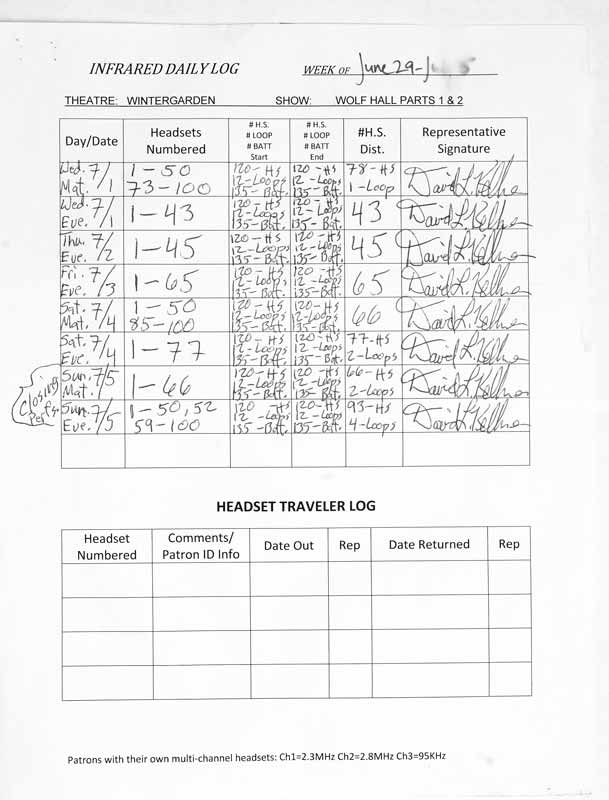 INFRARED DAILY LOG
WEEK OF June 29-
THEATRE: WINTERGARDEN SHOW: WOLF HALL PARTS 1 & 2
Day/Date
Headsets
Numbered
# H.S.
# LOOP
# BATT
Start
# H.S.
# LOOP
# BATT
End
#H.S.
Dist.
Representative
Signature
Wed. 7/1
Mat.
1-50
73-100
120-HS
12-Loops
135-Bat.
120-HS
12-Loops
135-Bat.
78-HS
1-Loop
David L. Kellner
Wed. 7/1
Eve.
1-43
120-HS
12-Loops
135-Bat.
120-HS
12-Loops
135-Bat.
43
David L. Kellner
Thu. 7/2
Eve.
1-45
120-HS
12-Loops
135-Bat.
120-HS
12-Loops
135-Bat.
45
David L. Kellner
Fri. 7/3
Eve.
1-65
120-HS
12-Loops
135-Bat.
120-HS
12-Loops
135-Bat.
65
David L. Kellner
Sat. 7/4
Mat.
1-50
85-100
120-HS
12-Loops
135-Bat.
120-HS
12-Loops
135-Bat.
66
David L. Kellner
Sat. 7/4
Eve.
1-77
120-HS
12-Loops
135-Bat.
120-HS
12-Loops
135-Bat.
77-HS
2-Loops
David L. Kellner
Closing
Perfs.
Sun. 7/5
Mat.
1-66
120-HS
12-Loops
135-Bat.
120-HS
12-Loops
135-Bat.
66-HS
2-Loops
David L. Kellner
Sun. 7/5
Eve.
1-50, 52
59-100
120-HS
12-Loops
135-Batt.
120-HS
12-Loops
135-Batt.
93-HS
4-Loops
David L. Kellner
HEADSET TRAVELER LOG
Headset
Numbered
Comments/
Patron ID Info
Date Out
Rep
Date Returned
Rep
Patrons with their own multi-channel headsets: Ch1=2.3MHz Ch2=2.8MHz Ch3=95KHz